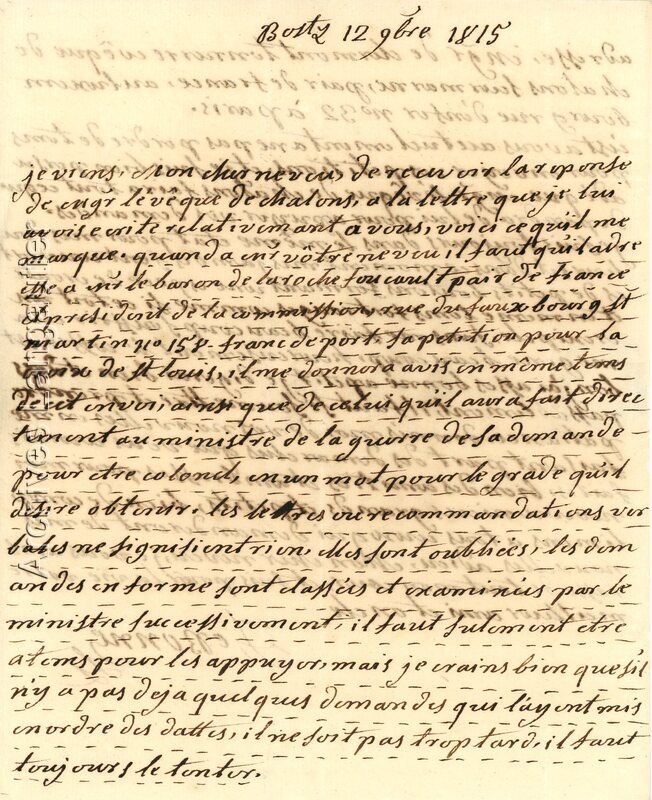 Bostz 12 9bre 1815
je viens, Mon cher neveu, de recevoir la reponse
de mgr lévêque de chalons, a la lettre que je lui
avois ecrite relativement a vous, voici ce qu'il me
marque. quand a mr vôtre neveu il faut qu'il adre
sse a mr le baron de la rochefoucault pair de france
et president de la commission, rue du faux bourg st
martin no 158. franc de port. sa petition pour la
croix de st louis, il me donnera avis en même tems
de cet envoi, ainsi que de celui qu'il aura fait direc
tement au ministre de la guerre de sa demande
pour etre colonel, en un mot pour le grade qu'il
desire obtenir. les lettres ou recommandations ver
bales ne signifient rien, elles sont oubliées, les dem
andes en forme sont classées et examinées par le
ministre successivement, il faut sulement etre
atems pour les appuyer, mais je crains bien que s'il
n'y a pas deja quelques demandes qui l'ayent mis
en ordre des dattes, il ne soit pas trop tard, il faut
toujours le tenter.